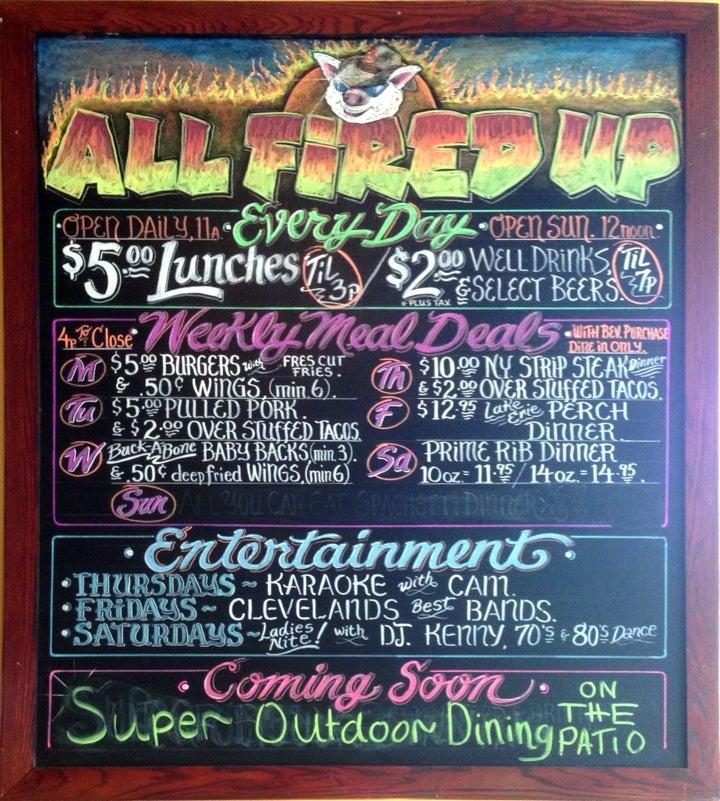 ALL FIRED UP
OPEN DAILY, 11A • Every Day • OPEN SUN. 12 noon •
$5.00 Lunches TIL 3P / $2.00 WELL DRINKS, & SELECT BEERS. TIL 7P
• PLUS TAX
4P To Close • Weekly Meal Deals • WITH BEV. PURCHASE DINE IN ONLY.
M $5.00 BURGERS with FRES CUT FRIES.
& .50¢ WINGS. (min 6).
Tu $5.00 PULLED PORK.
& $2.00 OVER STUFFED TACOS
W Buck-A-Bone BABY BACKS (min 3).
& .50¢ deep fried WINGS, (min 6)
Th $10.00 N.Y. STRIP STEAK Dinner
& $2.00 OVER STUFFED TACOS.
F $12.95 Lake Erie PERCH
DINNER.
Sa PRIME RIB DINNER
10oz. = 11.95 / 14oz. = 14.95.
Sun ALL YOU CAN EAT SPAGHETTI DINNER
• Entertainment •
• THURSDAYS ~ KARAOKE with CAM.
• FRIDAYS ~ CLEVELANDS Best BANDS.
• SATURDAYS ~ Ladies Nite! with D.J. KENNY, 70's & 80's Dance
• Coming Soon •
Super Outdoor Dining ON THE PATIO